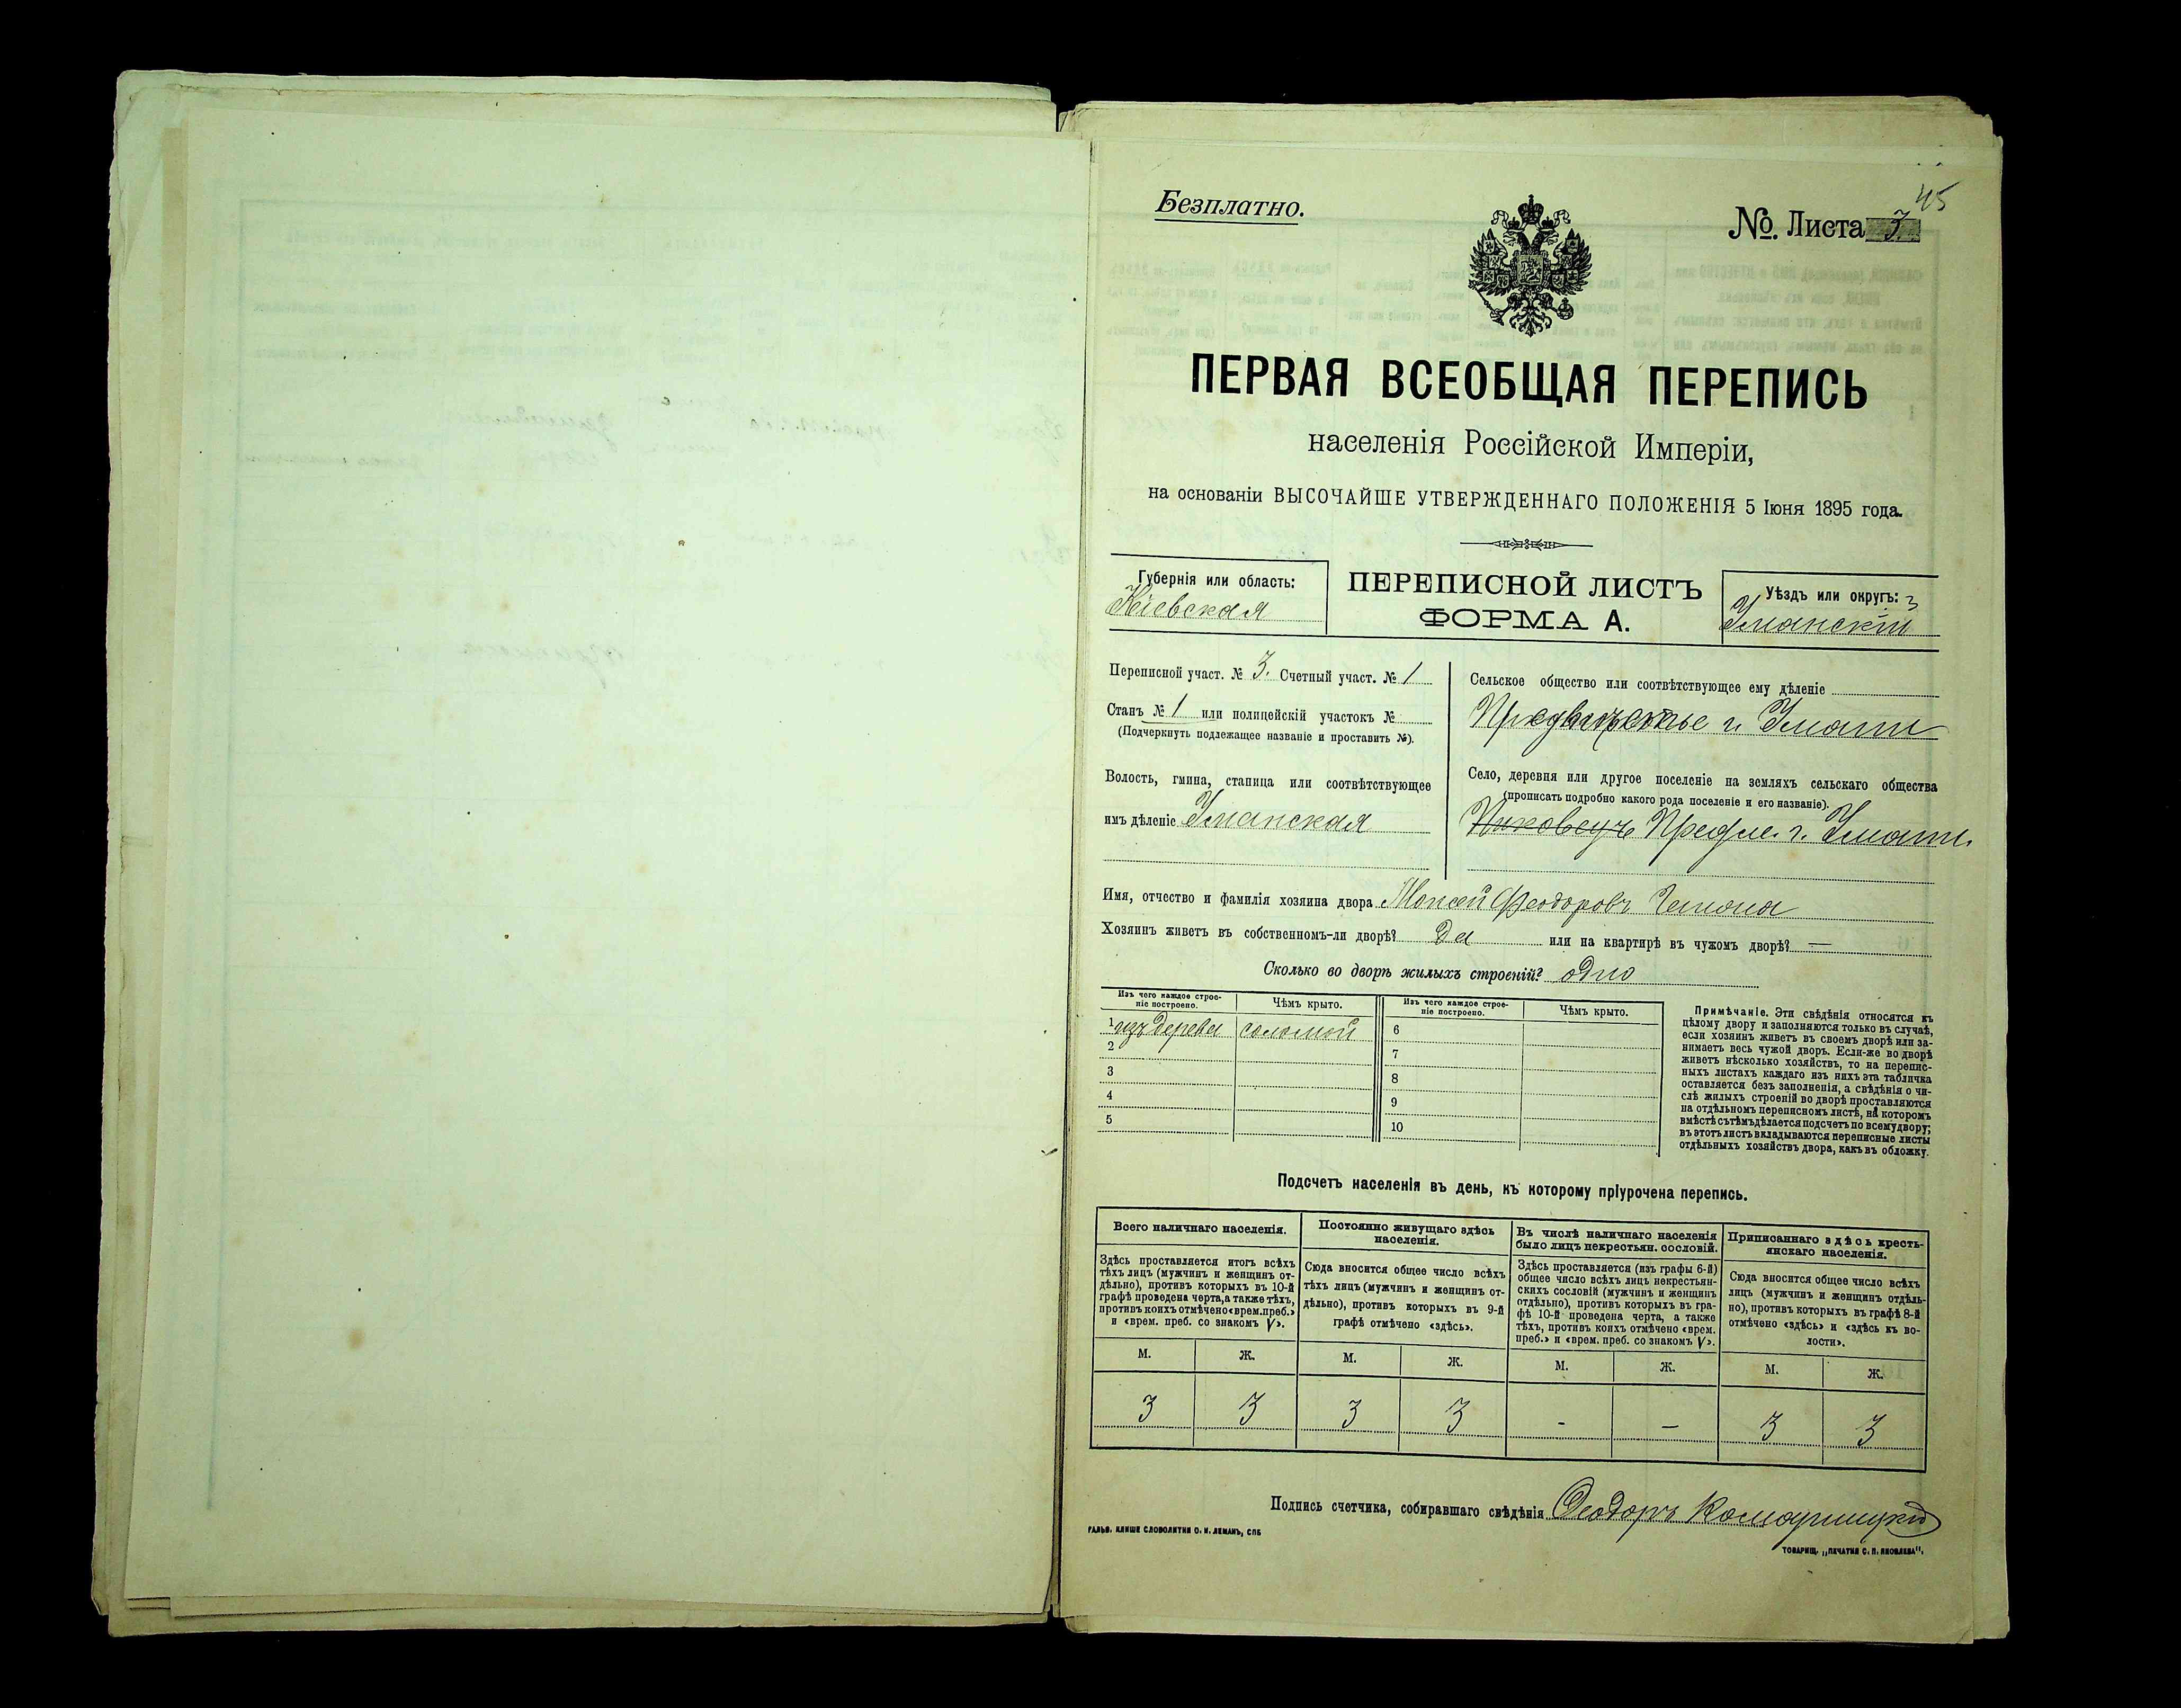 45
Безплатно.
№ Листа 3.
ПЕРВАЯ ВСЕОБЩАЯ ПЕРЕПИСЬ
населенія Россійской Имперіи,
на основаніи ВЫСОЧАЙШЕ УТВЕРЖДЕННАГО ПОЛОЖЕНІЯ 5 Іюня 1895 года.
Губернія или область:
Кіевская
ПЕРЕПИСНОЙ ЛИСТЪ
ФОРМА А.
Уѣздъ или округъ: 3
Уманскій
Переписной участ. № 3. Счетный участ. № 1
Станъ № 1 или полицейскій участокъ №
(Подчеркнуть подлежащее названіе и проставить №).
Волость, гмина, станица или соотвѣтствующее
имъ дѣленіе Уманская
Сельское общество или соотвѣтствующее ему дѣленіе
Предмѣстье г. Умани
Село, деревня или другое поселеніе на земляхъ сельскаго общества
(прописать подробно какого рода поселеніе и его названіе).
Предм. г. Умани.
Имя, отчество и фамилія хозяина двора Моисей Феодоровъ
Хозяинъ живетъ въ собственномъ-ли дворѣ? Да или на квартирѣ въ чужомъ дворѣ? —
Сколько во дворѣ жилыхъ строеній? одно
Изъ чего каждое строеніе построено.
Чѣмъ крыто.
Изъ чего каждое строеніе построено.
Чѣмъ крыто.
1 изъ дерева соломой
2
3
4
5
6
7
8
9
10
Примѣчаніе. Эти свѣдѣнія относятся къ
цѣлому двору и заполняются только въ случаѣ,
если хозяинъ живетъ въ своемъ дворѣ или за-
нимаетъ весь чужой дворъ. Если-же во дворѣ
живетъ нѣсколько хозяйствъ, то на перепис-
ныхъ листахъ каждаго изъ нихъ эта табличка
оставляется безъ заполненія, а свѣдѣнія о чи-
слѣ жилыхъ строеній во дворѣ проставляются
на отдѣльномъ переписномъ листѣ, на которомъ
вмѣстѣ съ тѣмъ дѣлается подсчетъ по всему двору;
въ этотъ листъ вкладываются переписные листы
отдѣльныхъ хозяйствъ двора, какъ въ обложку.
Подсчетъ населенія въ день, къ которому пріурочена перепись.
Всего наличнаго населенія.
Здѣсь проставляется итогъ всѣхъ
тѣхъ лицъ (мужчинъ и женщинъ от-
дѣльно), противъ которыхъ въ 10-й
графѣ проведена черта, а также тѣхъ,
противъ коихъ отмѣчено «врем. преб.»
и «врем. преб. со знакомъ V».
Постоянно живущаго здѣсь
населенія.
Сюда вносится общее число всѣхъ
тѣхъ лицъ (мужчинъ и женщинъ от-
дѣльно), противъ которыхъ въ 9-й
графѣ отмѣчено «здѣсь».
Въ числѣ наличнаго населенія
было лицъ некрестьян. сословій.
Здѣсь проставляется (изъ графы 6-й)
общее число всѣхъ лицъ некрестьян-
скихъ сословій (мужчинъ и женщинъ
отдѣльно), противъ которыхъ въ гра-
фѣ 10-й проведена черта, а также
тѣхъ, противъ коихъ отмѣчено «врем.
преб.» и «врем. преб. со знакомъ V».
Приписаннаго здѣсь кресть-
янскаго населенія.
Сюда вносится общее число всѣхъ
лицъ (мужчинъ и женщинъ отдѣль-
но), противъ которыхъ въ графѣ 8-й
отмѣчено «здѣсь» и «здѣсь въ во-
лости».
М. Ж. М. Ж. М. Ж. М. Ж.
3 3 3 3 - — 3 3
Подпись счетчика, собиравшаго свѣдѣнія Феодоръ Комарницкій
ГАЛЬВ. КЛИШЕ СЛОВОЛИТНИ О. И. ЛЕМАНЪ, СПБ
ТОВАРИЩ. „ПЕЧАТНЯ С. П. ЯКОВЛЕВА".